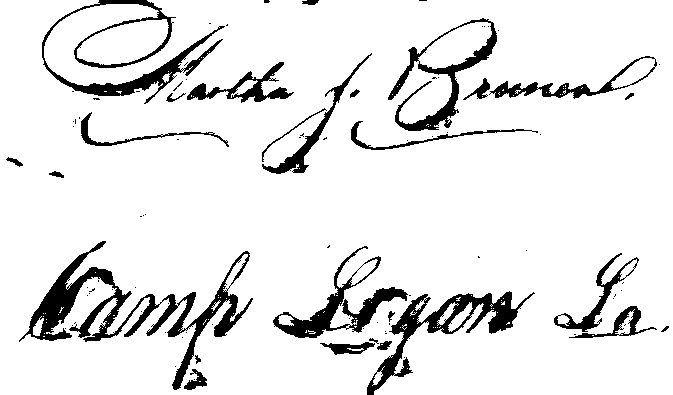 Martha J. Bruneau.
Camp Logan La.